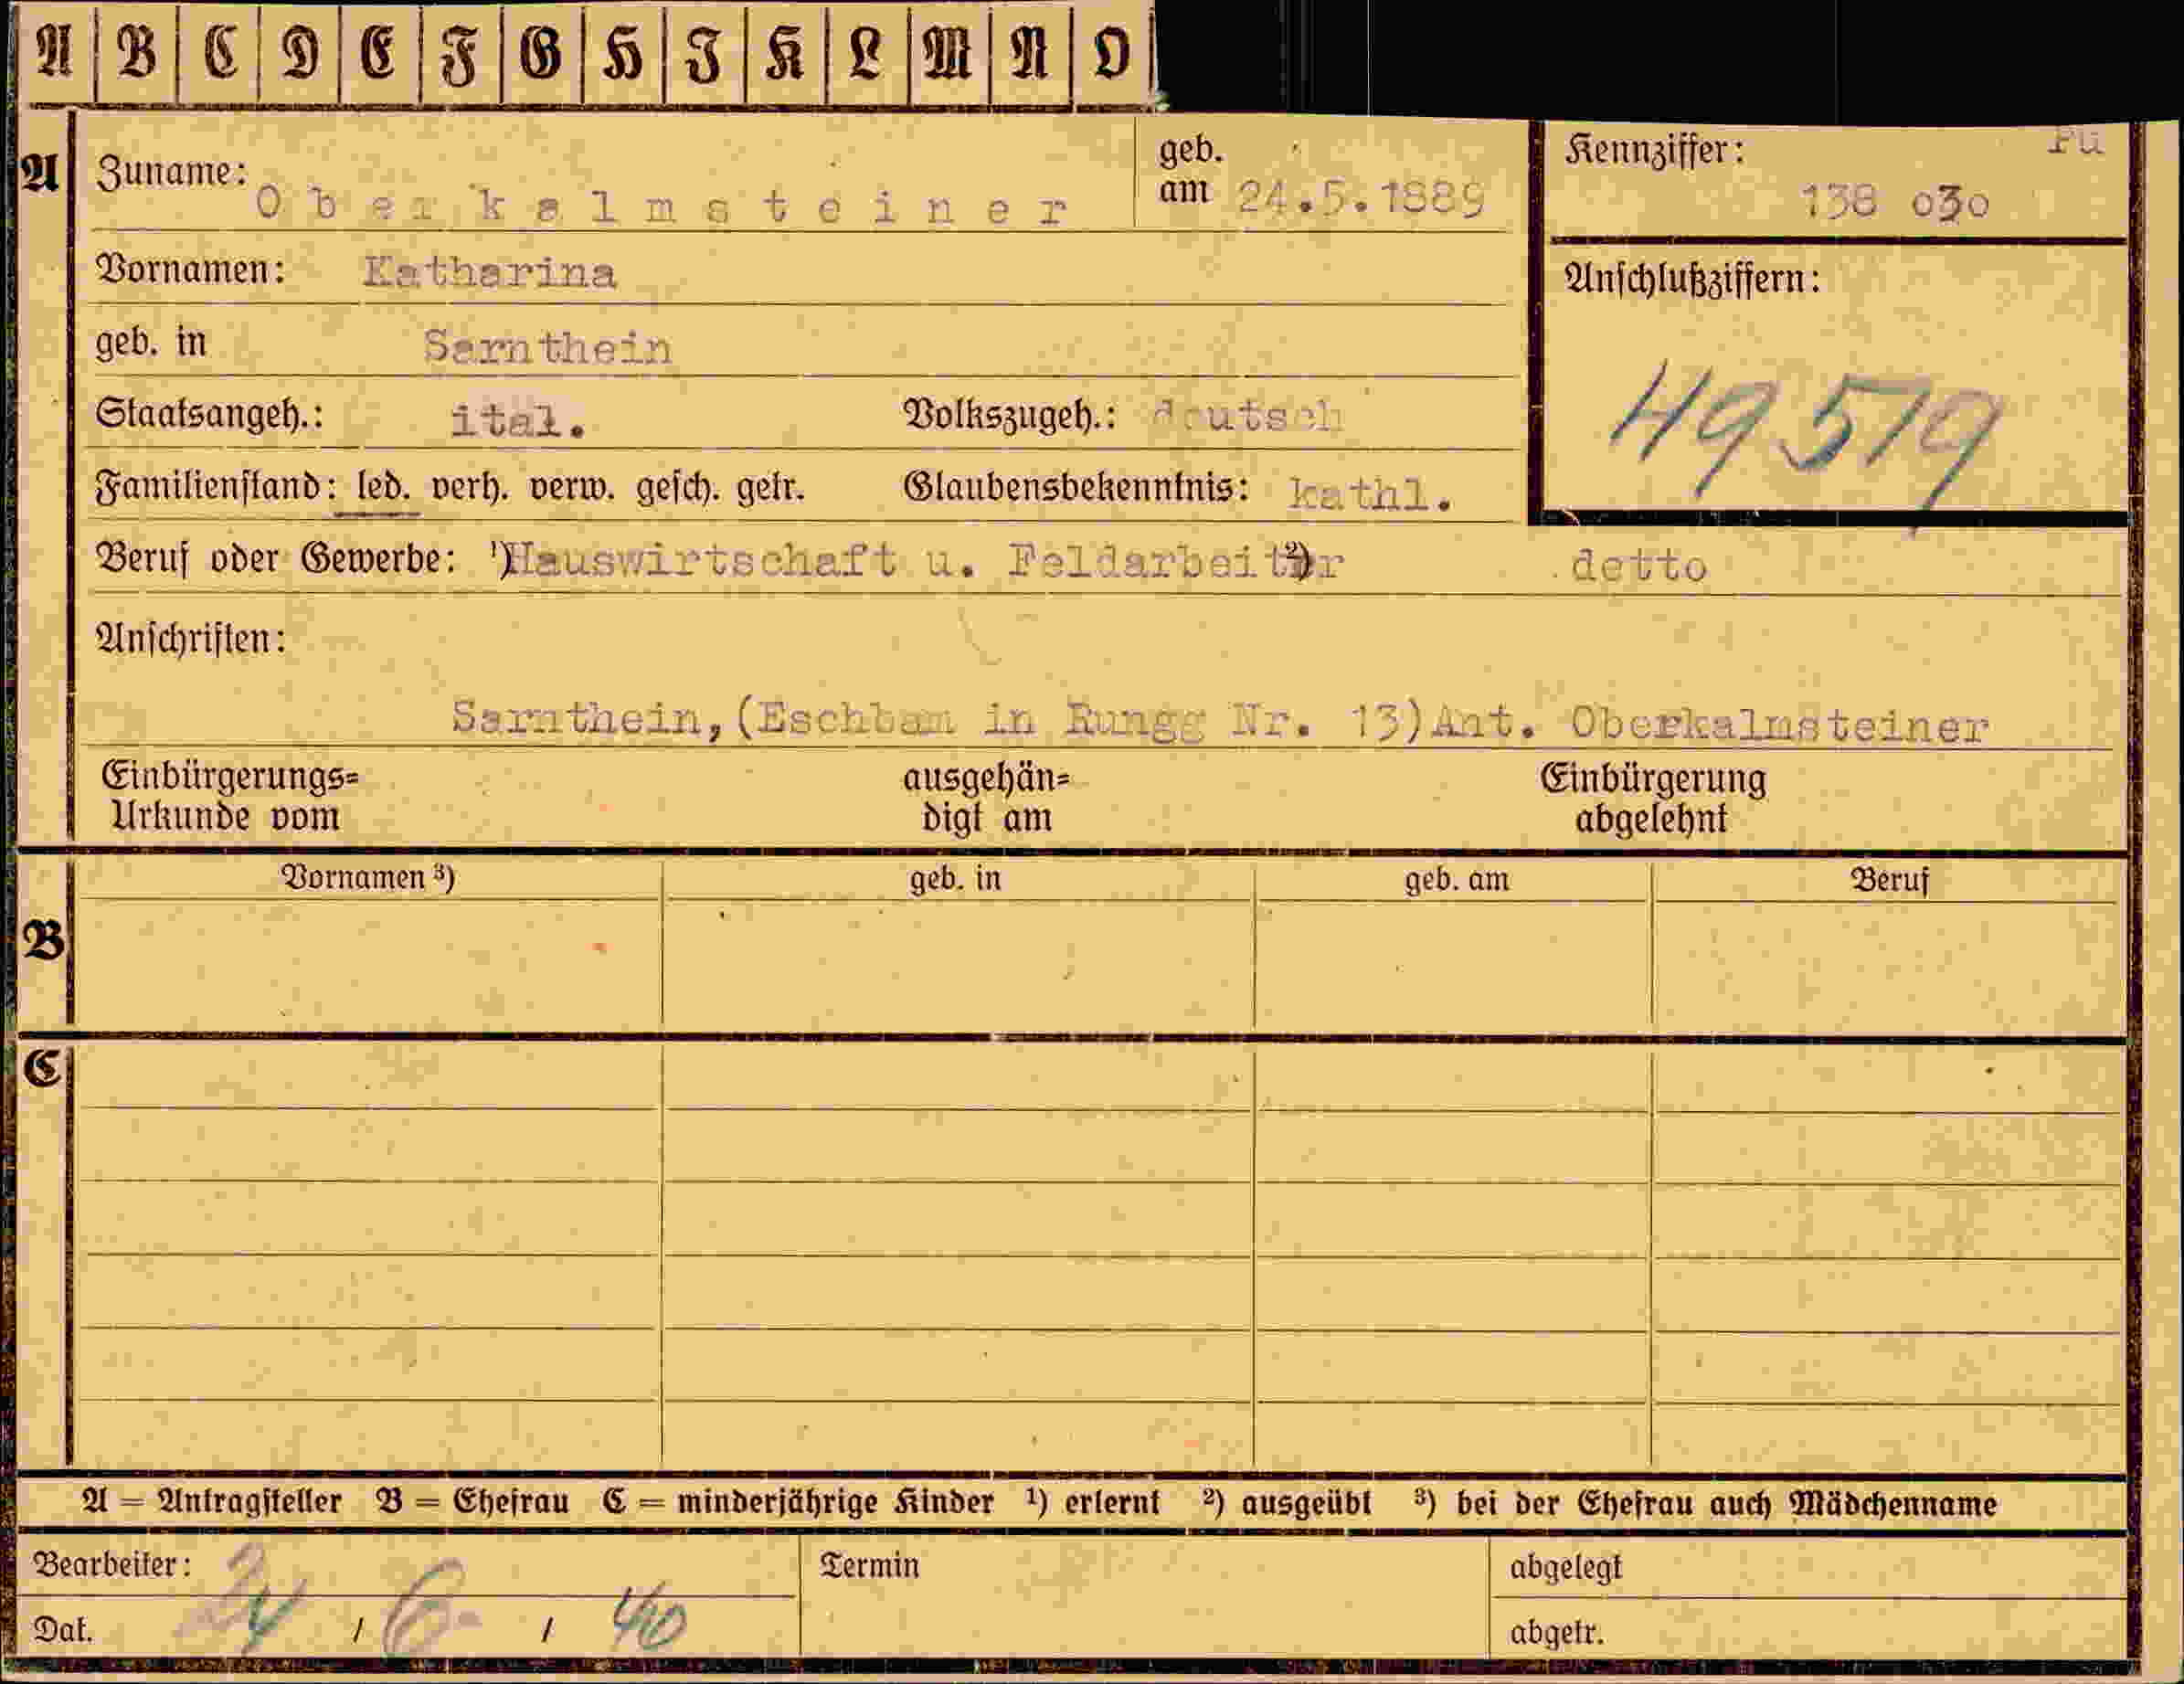 A B C D E F G H I K L M N O
A Zuname: Oberkalmsteiner geb. am 24.5.1889 Kennziffer: Pu 138 030
Vornamen: Katharina
Anschlußziffern: 49519
geb. in Sarnthein
Staatsangeh.: ital. Volkszugeh.: deutsch
Familienstand: led. verh. verw. gesch. getr. Glaubensbekenntnis: kathl.
Beruf oder Gewerbe: ¹) Hauswirtschaft u. Feldarbeiter ²) detto
Anschriften:
Sarnthein, (Eschbam in Rungg Nr. 13) Ant. Oberkalmsteiner
Einbürgerungs= ausgehän= Einbürgerung
Urkunde vom digt am abgelehnt
Vornamen ³) geb. in geb. am Beruf
B
C
A = Antragsteller B = Ehefrau C = minderjährige Kinder ¹) erlernt ²) ausgeübt ³) bei der Ehefrau auch Mädchenname
Bearbeiter: Termin abgelegt
Dat. 24 / 6 / 40 abgetr.